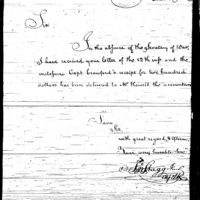 Sir
In the absence of the Secretary of War,
I have received your letter of the 12th inst. and the
enclosing Capt. Crawford's receipt for two hundred
dollars has been delivered to Mr the accountant
I am
Sir,
with great regard, & esteem
Your very humble Serv